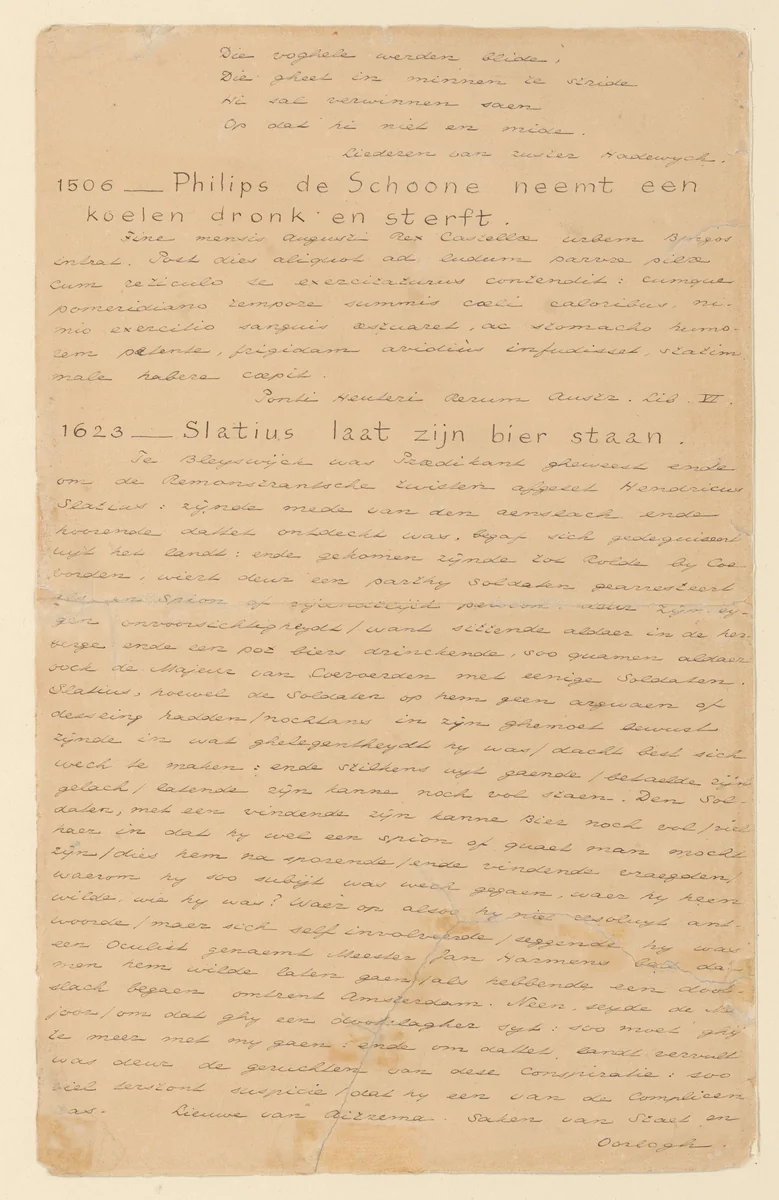 Die voghele werden blide,
Die gheet in minnen te stride
Hi sal verwinnen saen
Op dat hi niet en mide.
Liederen van zuster Hadewych.
1506 — Philips de Schoone neemt een
koelen dronk en sterft.
Fine mensis Augusti Rex Castellæ urbem Burgos
intrat. Post dies aliquot ad ludum parvæ pilæ
cum reticulo se exercitaturus contendit: cumque
pomeridiano tempore summis cæli caloribus, ni-
mio exercitio sanguis æstuaret, ac stomacho humo-
rem petente, frigidam avidiùs infudisset, statim
male habere cœpit.
Ponti Heuteri Rerum Austr. Lib. VI.
1623 — Slatius laat zijn bier staan.
Te Bleyswijck was Prædikant gheweest ende
om de Remonstrantsche twisten afgeset Hendricus
Slatius: zijnde mede van den aenslach ende
hoorende dattet ontdeckt was, begaf sich gedeguiseert
uyt het landt: ende gekomen zijnde tot Rolde by Coe-
vorden, wiert deur een parthy Soldaten gearresteert
als een Spion of vyandtlijck persoon deur zijn ey-
gen onvoorsichtigheydt/want sittende aldaer in de her-
berge ende een pot biers drinckende, soo quamen aldaer
oock de Majeur van Coevoerden met eenige Soldaten.
Slatius, hoewel de Soldaten op hem geen argwaen of
desseing hadden/nochtans in zijn ghemoet bewust
zijnde in wat ghelegentheydt hy was/dacht best sich
wech te maken: ende stilkens uyt gaende/betaelde zijn
gelach/latende zijn kanne noch vol staen. Den Sol-
daten, met een vindende zijn kanne Bier noch vol/viel
haer in dat hy wel een spion of quaet man mocht
zijn/dies hem na sporende/ende vindende vraegden/
waerom hy soo subijt was wech gegaen, waer hy heen
wilde, wie hy was? Waer op alsoo hy niet resoluyt ant-
woorde/maer sich self involveerde/seggende hy was
een Oculist genaemt Meester Jan Harmens bad da-
men hem wilde laten gaen/als hebbende een doot-
slach begaen omtrent Amsterdam. Neen, seyde de Ma-
joor/om dat ghy een dootslagher syt: soo moet ghy
te meer met my gaen: ende om dattet landt vervult
was deur de geruchten van dese Conspiratie: soo
viel terstont suspicie/dat hy een van de Complicen
as. Lieuwe van Aitzema. Saken van Staet en
Oorlogh.